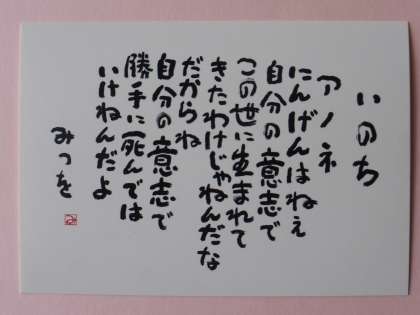 いのち
アノネ
にんげんはねぇ
自分の意志で
この世に生まれて
きたわけじゃねんだな
だからね
自分の意志で
勝手に死んでは
いけねんだよ
みつを